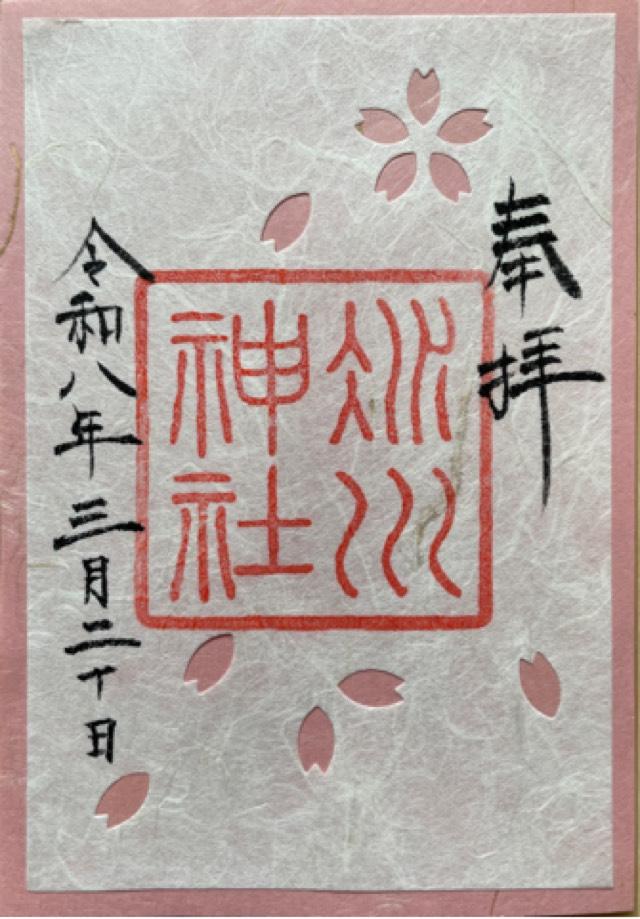 奉拝
冰川
神社
令和八年三月二十日